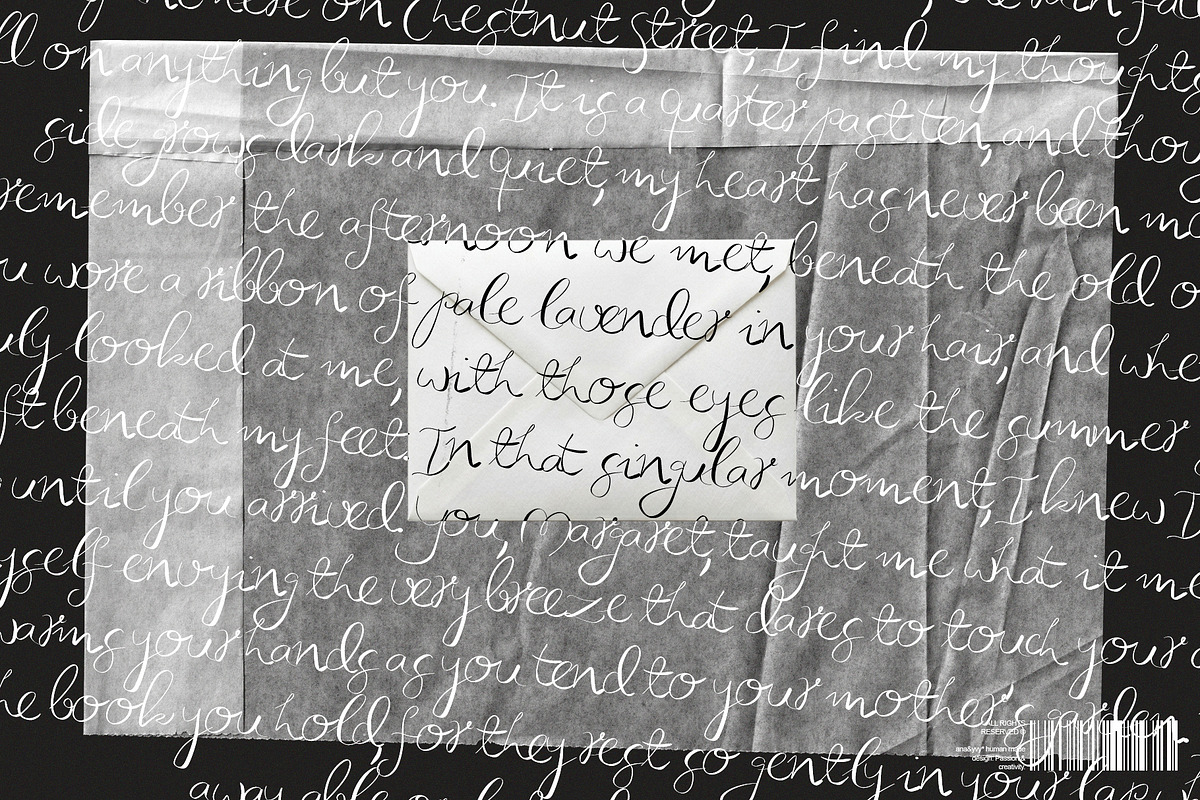 here on Chestnut Street, I find my thoughts
ll on anything but you. It is a quarter past ten, and thou
side grows dark and quiet, my heart has never been mo
remember the afternoon we met, beneath the old o
u wore a ribbon of pale lavender in your hair, and whe
uly looked at me, with those eyes like the summer
ft beneath my feet. In that singular moment, I knew I
until you arrived. You, Margaret, taught me what it me
yself envying the very breeze that dares to touch your
waring your hands as you tend to your mother's garden,
he book you hold, for they rest so gently in your lap, w
away
ALL RIGHTS
RESERVED ©
ana&yvy® human made
design. Passion &
creativity